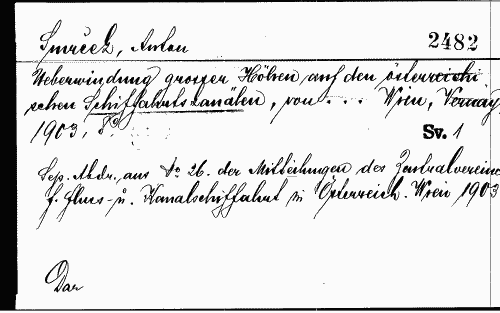 Smrček, Anton 2482
Ueberwindung grosser Höhen auf den österreichi
schen Schiffahrtskanälen, von ... Wien, Vernay,
1903, 8°. Sv. 1
Sep. Abdr. aus No 26. der Mitteilungen des Zentralvereins
f. Fluss- u. Kanalschiffahrt in Österreich. Wien 1903
Dar